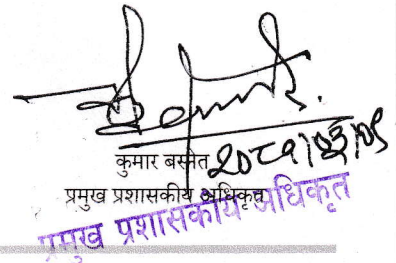 कुमार बस्नेत
प्रमुख प्रशासकीय अधिकृत
प्रमुख प्रशासकीय अधिकृत